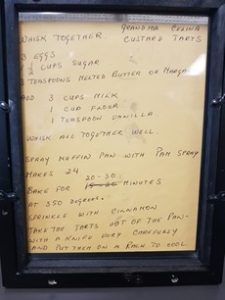 GRANDMA CELINA
WHISK TOGETHER CUSTARD TARTS
3 EGGS
CUPS SUGAR
TEASPOONS MELTED BUTTER OR MARGA
ADD 3 CUPS MILK
1 CUP FLOUR
1 TEASPOON VANILLA
WHISK ALL TOGETHER WELL
SPRAY MUFFIN PAN WITH PAM SPRAY
MAKES 24
20-30
BAKE FOR MINUTES
AT 350 DEGREES.
SPRINKLE WITH CINNAMON
TAKE THE TARTS OUT OF THE PAN-
WITH A KNIFE VERY CAREFULLY
AND PUT THEM ON A RACK TO COOL